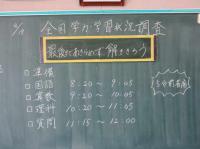 4/17 全国学力・学習状況調査
最後まであきらめず、解ききろう
□ 準備
□ 国語 8:20 〜 9:05
□ 算数 9:20 〜 10:05
□ 理科 10:20 〜 11:05
□ 質問 11:15 〜 12:00
5分前着席